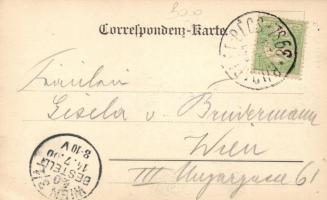 300
Correspondenz-Karte
Fräulein
Gisela v. Brüdermann
Wien
III Ungargasse 61
WIEN
BESTELLT
14.7.00
8·10V